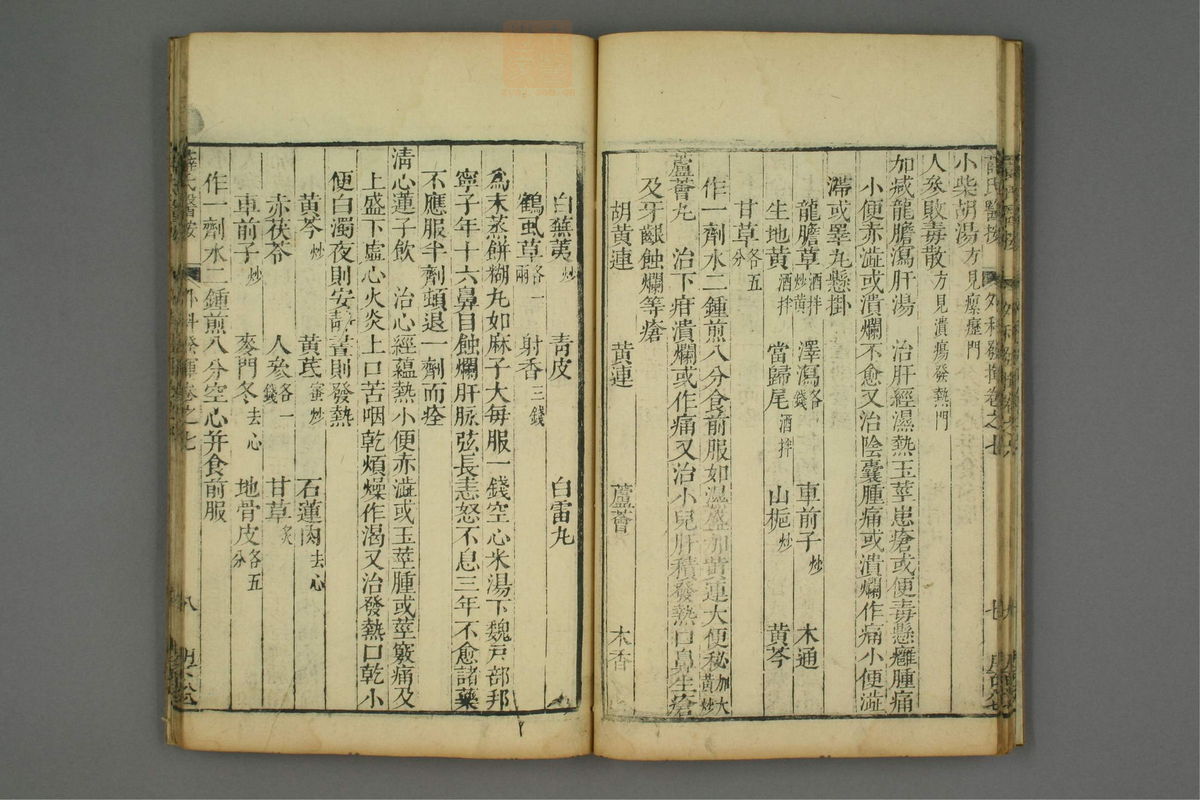 小柴胡湯方見瘰癧門
人參敗毒散方見潰瘍發熱門
加減龍膽瀉肝湯　治肝經濕熱玉莖患瘡或便毒懸癰腫痛
小便赤澁或潰爛不愈又治陰囊腫痛或潰爛作痛小便澁
滯或睪丸懸掛
龍膽草酒拌炒黃　澤瀉各一錢　車前子炒　木通
生地黃酒拌　當歸尾酒拌　山梔炒　黃芩
甘草各五分
作一劑水二鍾煎八分食前服如濕盛加黃連大便秘加大黃炒
蘆薈丸　治下疳潰爛或作痛又治小兒肝積發熱口鼻生瘡
及牙齦蝕爛等瘡
胡黃連　黃連　蘆薈　木香
白蕪荑炒　青皮　白雷丸
鶴虱草各一兩　射香三錢
爲末蒸餅糊丸如麻子大每服一錢空心米湯下魏戸部邦
寧子年十六鼻目蝕爛肝脉弦長恚怒不息三年不愈諸藥
不應服半劑頓退一劑而痊
清心蓮子飲　治心經蘊熱小便赤澁或玉莖腫或莖竅痛及
上盛下虛心火炎上口苦咽乾煩燥作渴又治發熱口乾小
便白濁夜則安靜晝則發熱
黃芩炒　黃芪蜜炒　石蓮肉去心
赤茯苓　人參各一錢　甘草炙
車前子炒　麥門冬去心　地骨皮各五分
作一劑水二鍾煎八分空心并食前服
薛氏醫按　外科發揮卷之七　八